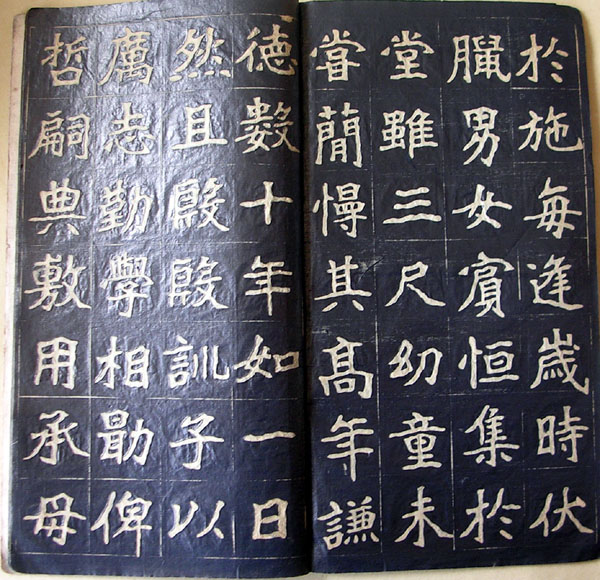 於施每逢歲時伏
臘男女賓恒集於
堂雖三尺幼童未
嘗簡慢其髙年謙
德數十年如一日
然且殷殷訓子以
厲志勤學相勗俾
哲嗣典敷用承母